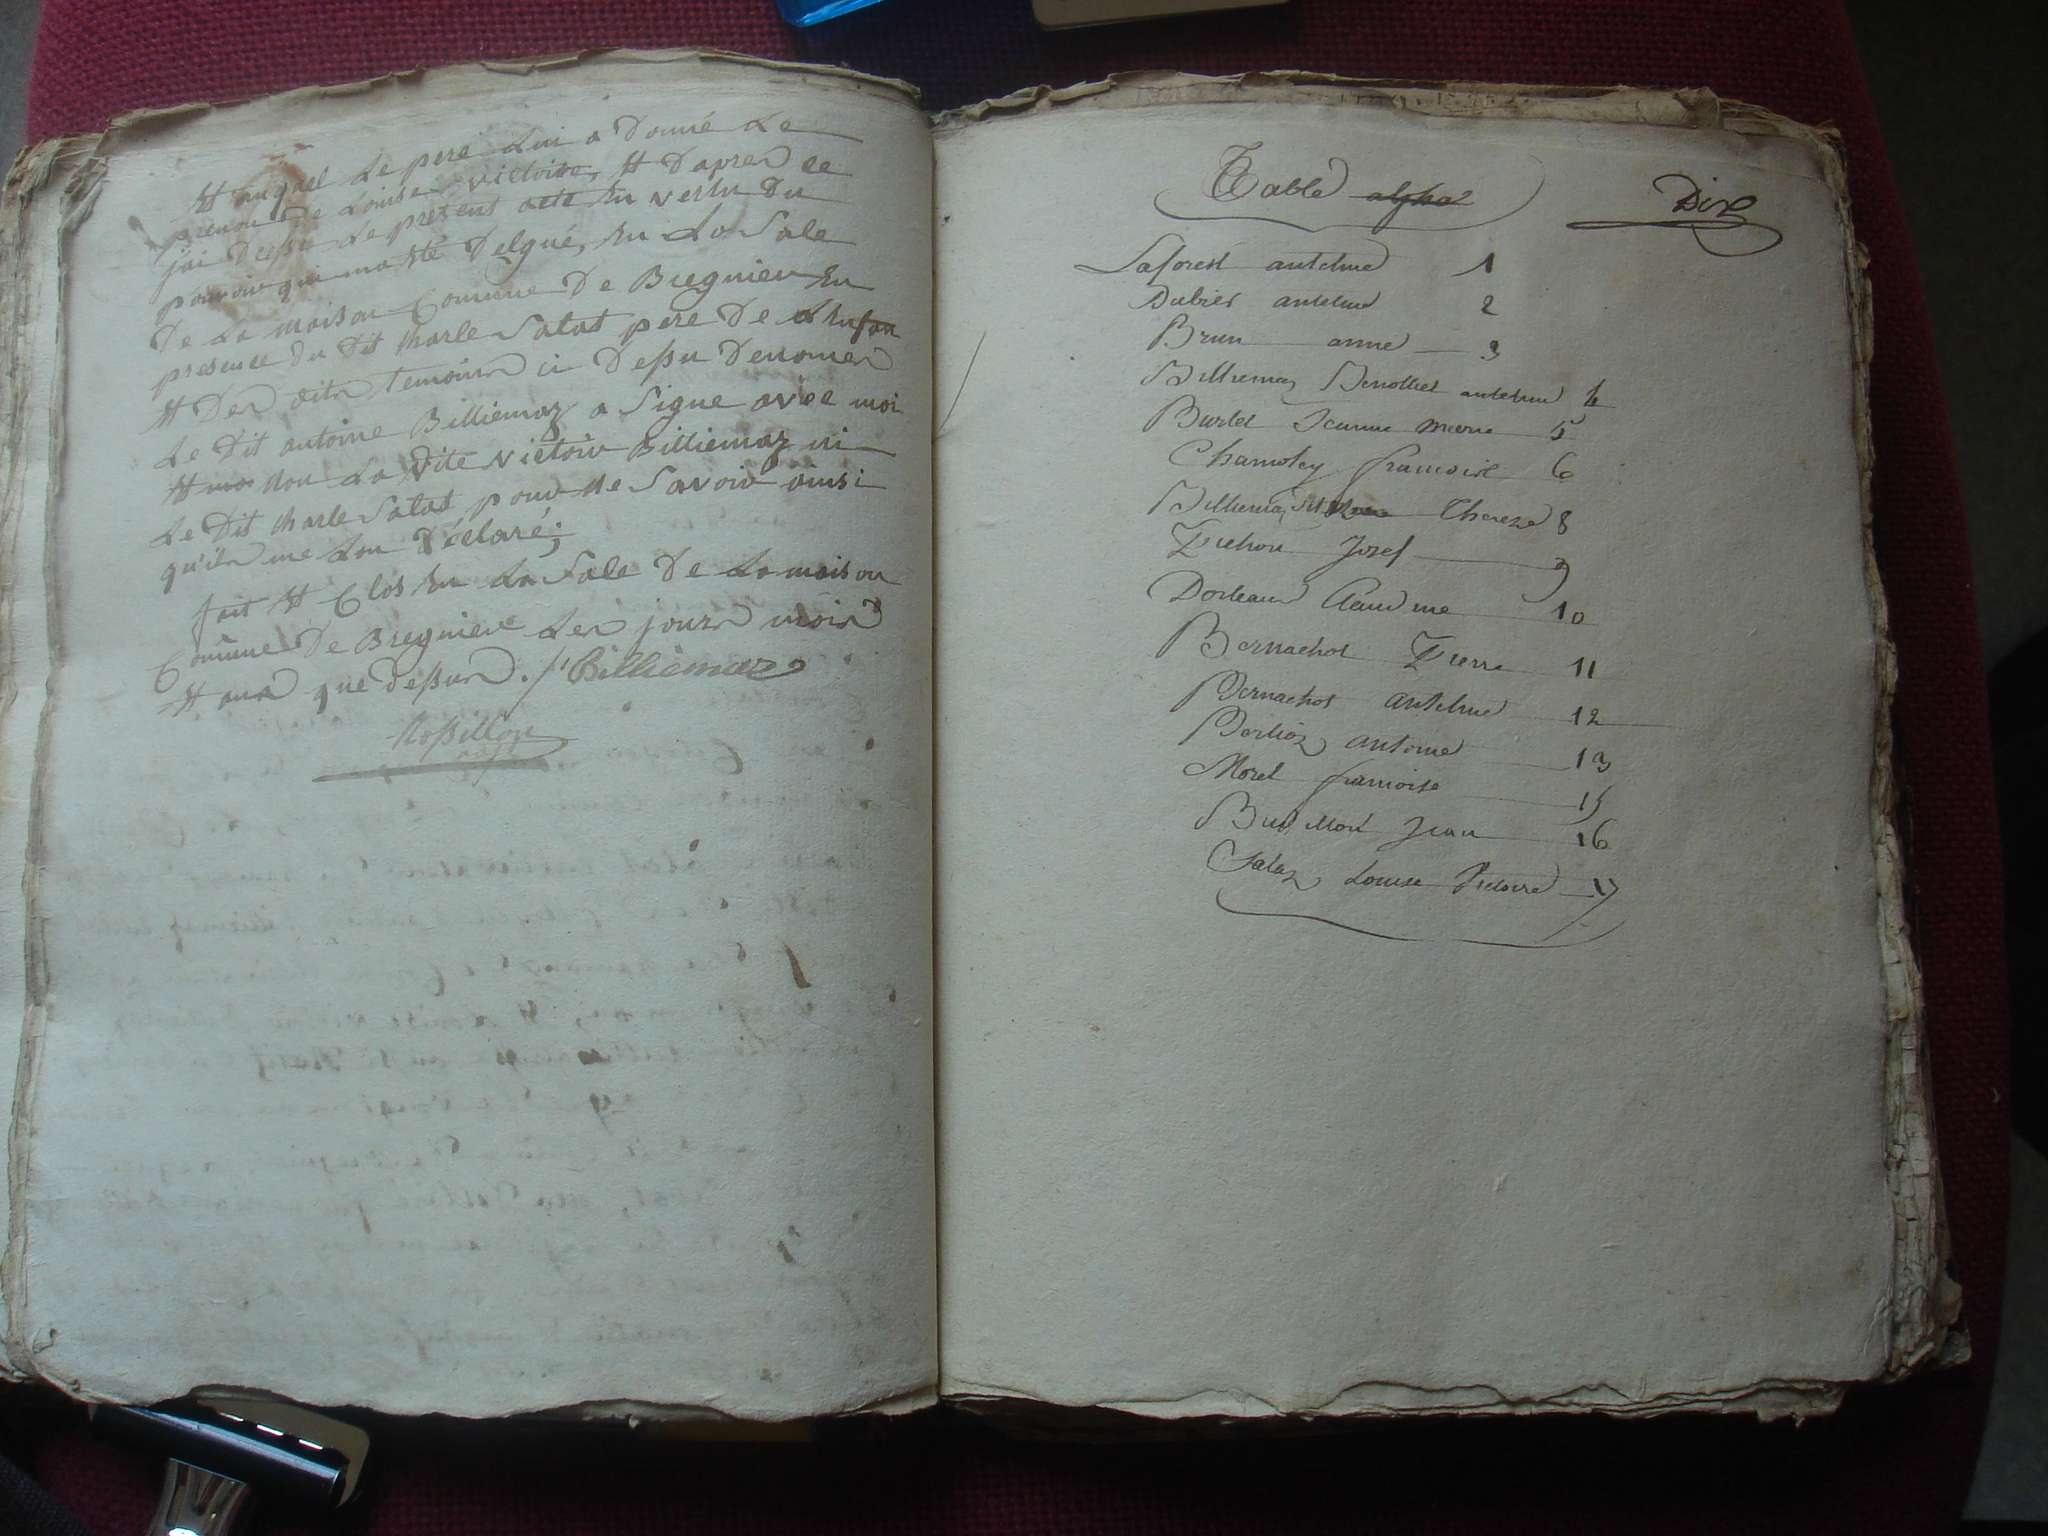 Et auquel Le pere Lui a Donné Le
prenon De Louise victoire, Et Daprer ce
jai Dressé Le present acte En vertu Du
pouvoir qui ma Eté Delgué, En La Sale
De La maison Commune De Bregnier En
presence Du Dit Charle Salat pere De Lenfan
Et Der dits temoins ci Dessu Denomer
Le Dit antoine Billiemaz a Signe avec moi
Et non La Dite victoir Billiemaz ni
Le Dit Charle Salat pour ne Savoir ainsi
qu'ils me Lon Déclaré;
fait Et Clos En La Sale De La maison
Commune De Bregnier Les jours mois
Et ans que Dessus. Billiemaz
Rossillon
Table alpha Dix
Laforest antelme 1
Dubiet antelme 2
Brun anne 3
Billiemaz Benoitte antelme 4
Burlet Jeanne Marie 5
Chamoley francoise 6
Billiemaz Thereze 8
Pichon Jozef 9
Dorleans Claudine 10
Bernachot Pierre 11
Bernachot antelme 12
Berlioz antoine 13
Morel francoise 15
Jean 16
Salaz Louise Victoire 17